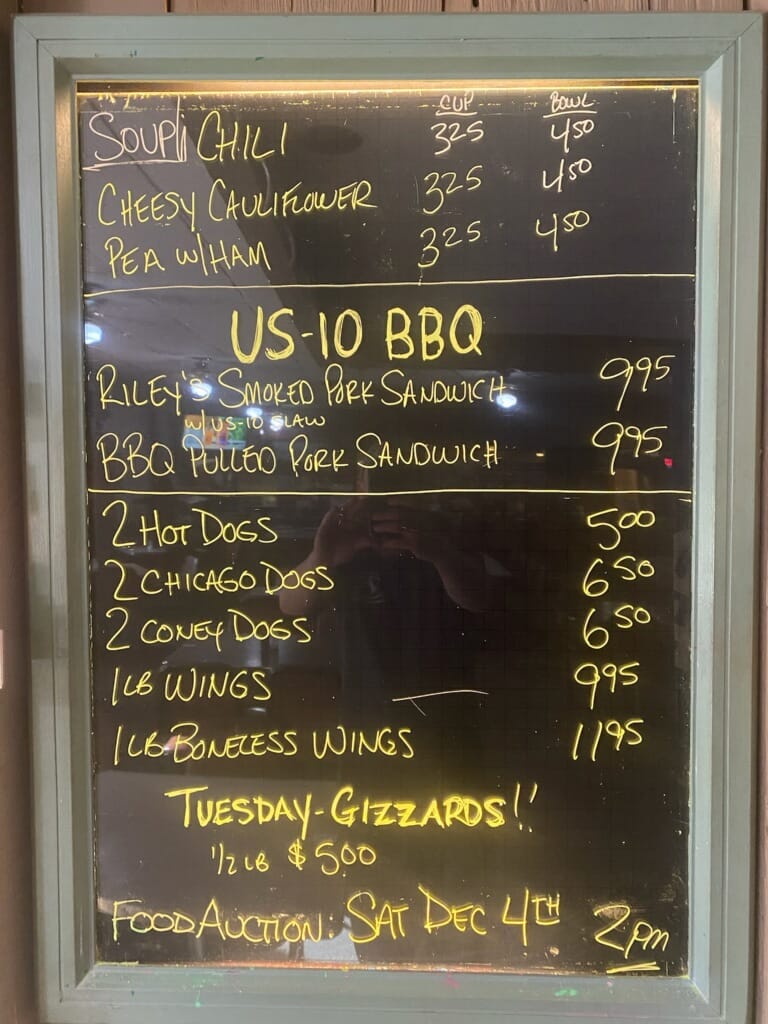 CUP BOWL
SOUP: CHILI 325 450
CHEESY CAULIFLOWER 325 450
PEA W/HAM 325 450
US-10 BBQ
RILEY'S SMOKED PORK SANDWICH 995
W/US-10 SLAW
BBQ PULLED PORK SANDWICH - 995
2 HOT DOGS 500
2 CHICAGO DOGS 650
2 CONEY DOGS 650
1 LB WINGS 995
1 LB BONELESS WINGS 1195
TUESDAY-GIZZARDS!!
1/2 LB $500
FOOD AUCTION: SAT DEC 4TH 2PM